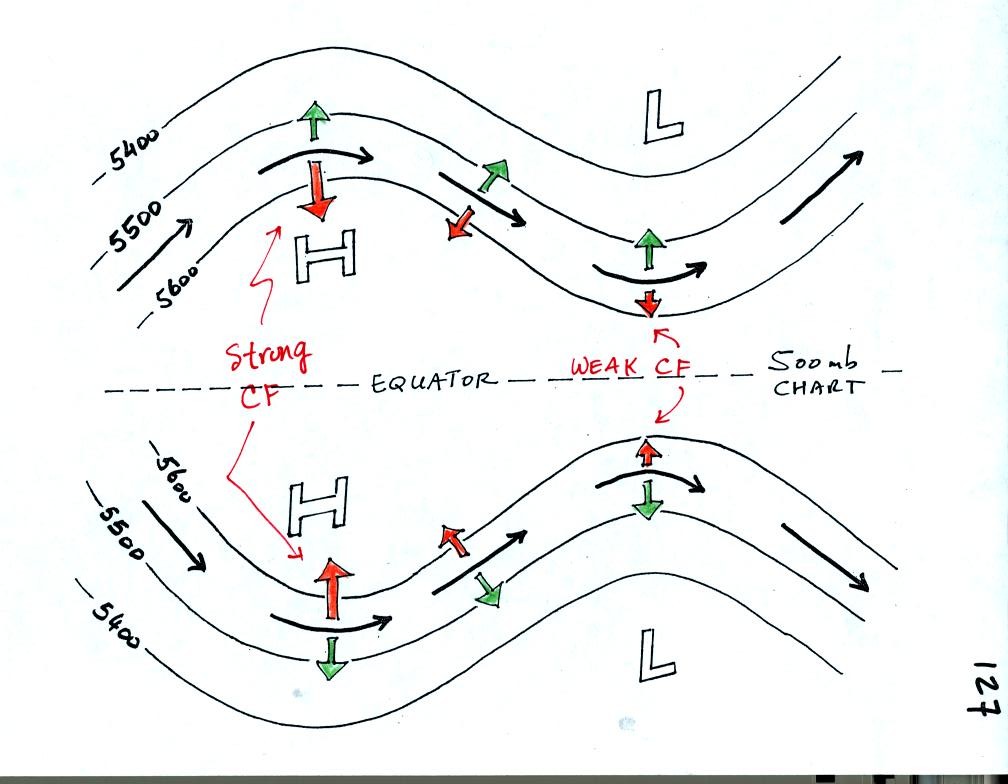 L
5400
5500
H
5600
Strong
CF
WEAK CF
500mb
CHART
EQUATOR
5600
H
5500
5400
L
127